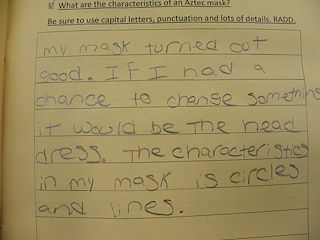 What are the characteristics of an Aztec mask?
Be sure to use capital letters, punctuation and lots of details. RADD.
my mask turned out
good. IF I had a
chance to change something
it would be the head
dress. The characteristics
in my mask is circles
and lines.